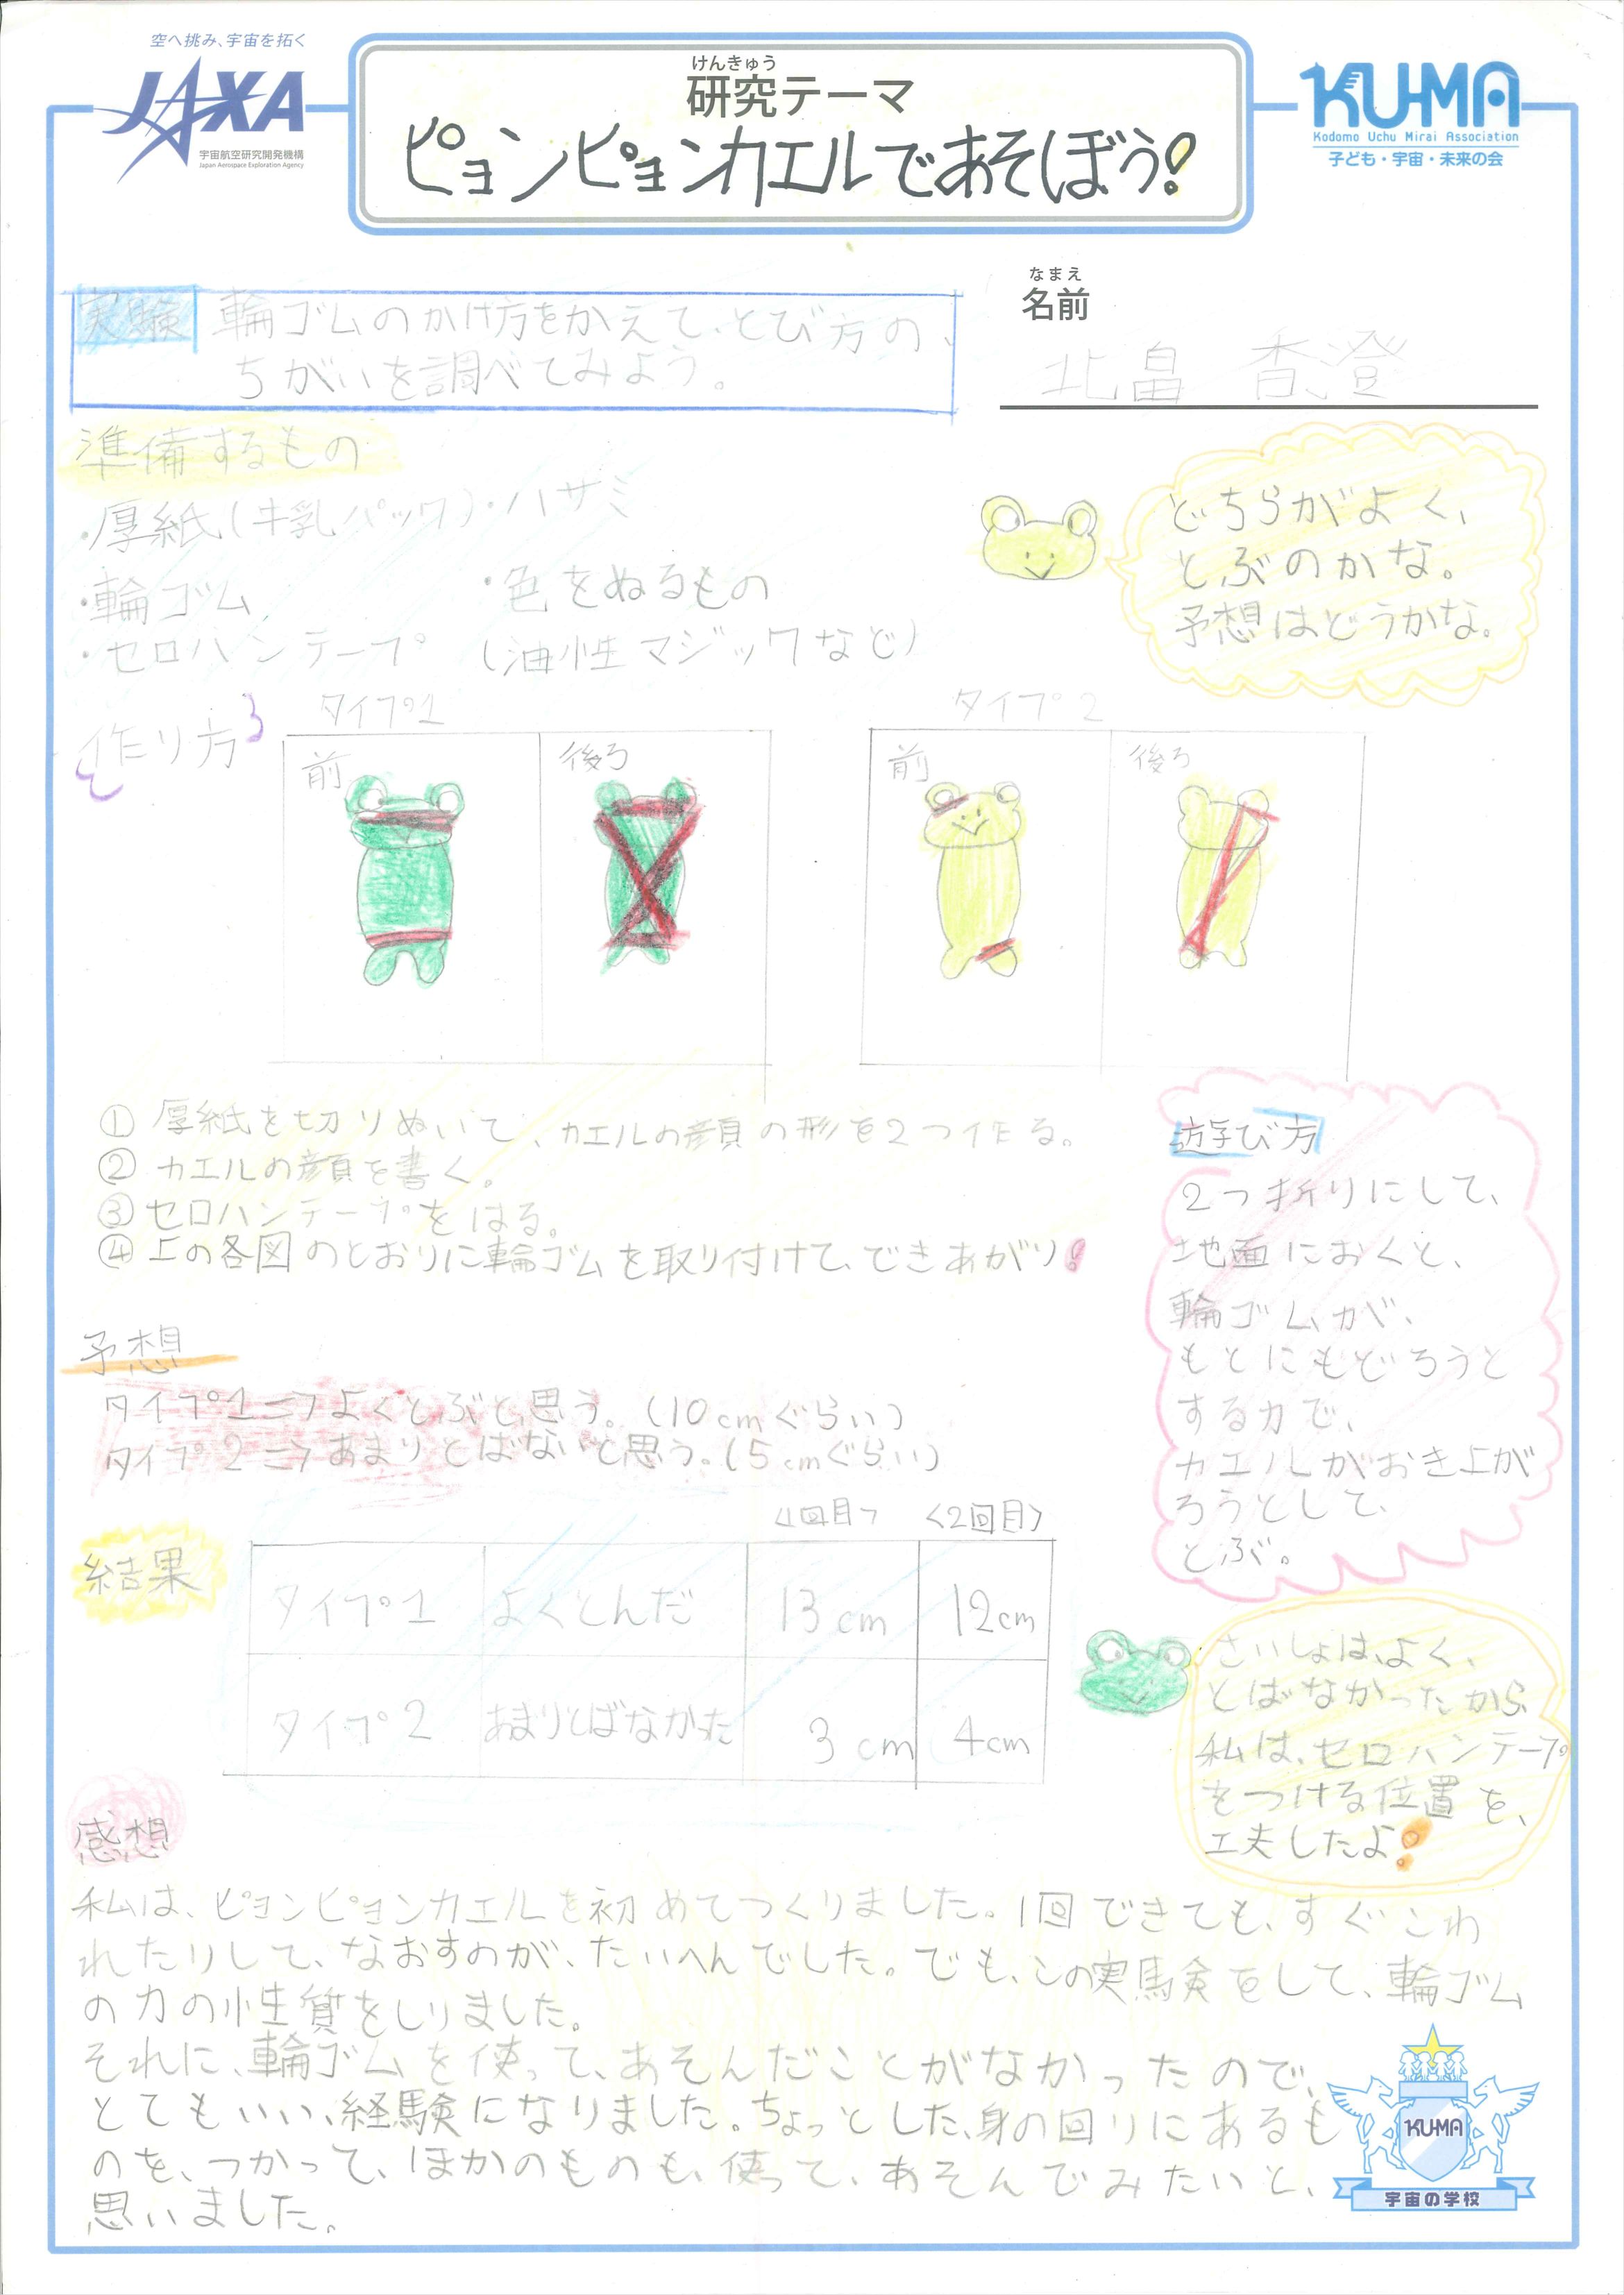 空へ挑み、宇宙を拓く
JAXA
宇宙航空研究開発機構
Japan Aerospace Exploration Agency
けんきゅう
研究テーマ
ピョンピョンカエルであそぼう!
KU-MA
Kodomo Uchu Mirai Association
子ども・宇宙・未来の会
実験 輪ゴムのかけ方をかえて、とび方の、
ちがいを調べてみよう。
なまえ
名前
北畠 香澄
準備するもの
・厚紙(牛乳パック)・ハサミ
・輪ゴム ・色をぬるもの
・セロハンテープ (油性マジックなど)
どちらがよく、
とぶのかな。
予想はどうかな。
作り方
タイプ1
前 後ろ
タイプ2
前 後ろ
① 厚紙を切りぬいて、カエルの顔の形を2つ作る。
② カエルの顔を書く。
③ セロハンテープをはる。
④ 上の各図のとおりに輪ゴムを取り付けて、できあがり!
遊び方
2つ折りにして、
地面におくと、
輪ゴムが、
もとにもどろうと
する力で、
カエルがおき上が
ろうとして、
とぶ。
予想
タイプ1⇒よくとぶと思う。(10cmぐらい)
タイプ2⇒あまりとばないと思う。(5cmぐらい)
結果
<1回目> <2回目>
タイプ1 よくとんだ 13cm 12cm
タイプ2 あまりとばなかった 3cm 4cm
さいしょは、よく、
とばなかったから
私は、セロハンテープ
をつける位置を、
工夫したよ!
感想
私は、ピョンピョンカエルを初めてつくりました。1回できても、すぐこわ
れたりして、なおすのが、たいへんでした。でも、この実験をして、輪ゴム
の力の性質をしりました。
それに、輪ゴムを使って、あそんだことがなかったので、
とてもいい、経験になりました。ちょっとした、身の回りにあるも
のを、つかって、ほかのものも、使って、あそんでみたいと、
思いました。
KU-MA
宇宙の学校